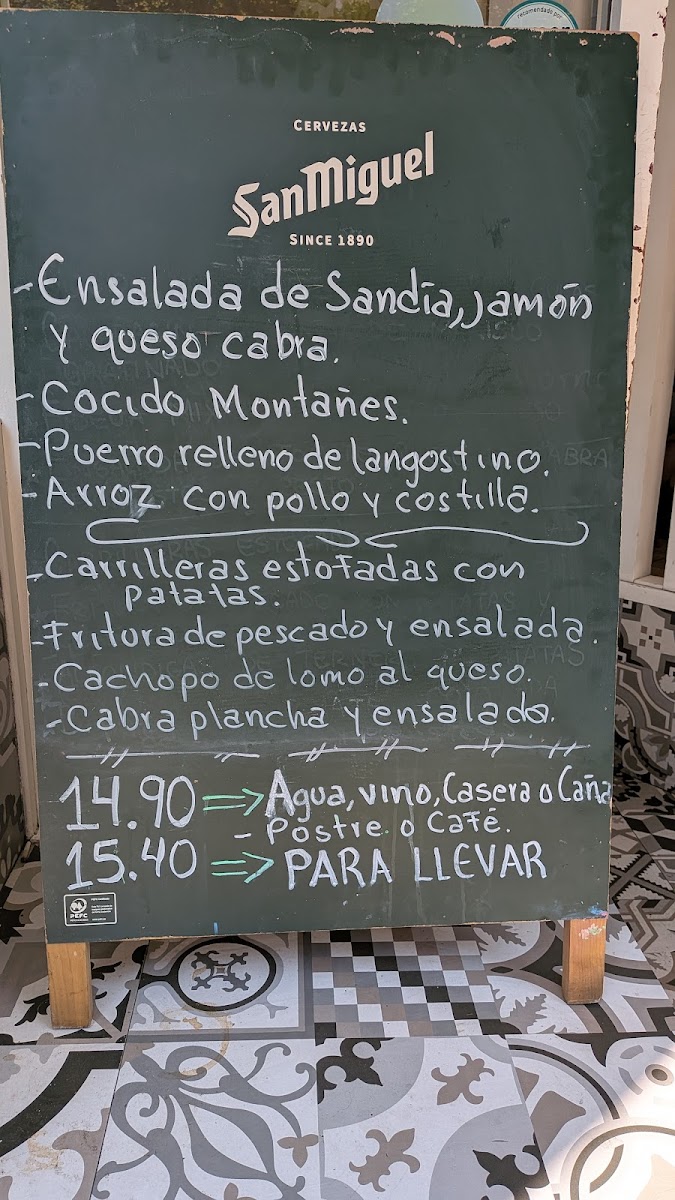 recomendado por
CERVEZAS
San Miguel
SINCE 1890
- Ensalada de Sandía, jamón
y queso cabra.
- Cocido Montañes.
- Puerro relleno de langostino.
- Arroz con pollo y costilla.
- Carrilleras estofadas con
patatas.
- Fritura de pescado y ensalada.
- Cachopo de lomo al queso.
- Cabra plancha y ensalada.
14.90 ⇒ Agua, vino, Casera o Caña
- Postre o Café.
15.40 ⇒ PARA LLEVAR
PEFC